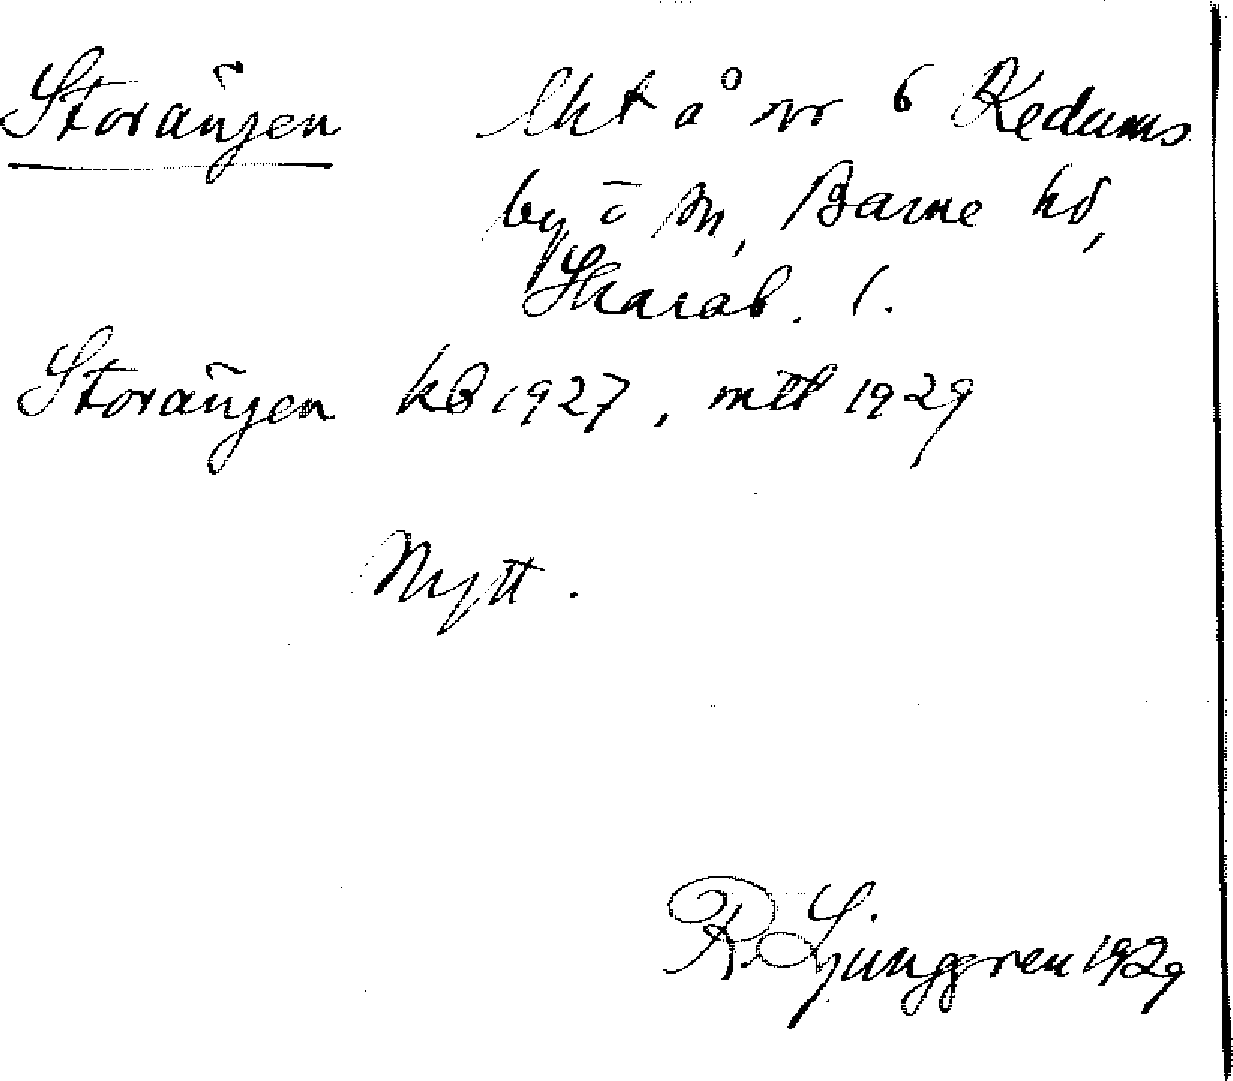 Storängen lht å nr 6 Kedums
by i sn, Barne hd,
Skarab. l.
Storängen kb 1927, mtl 1929
Nytt.
R. Ljunggren 1929